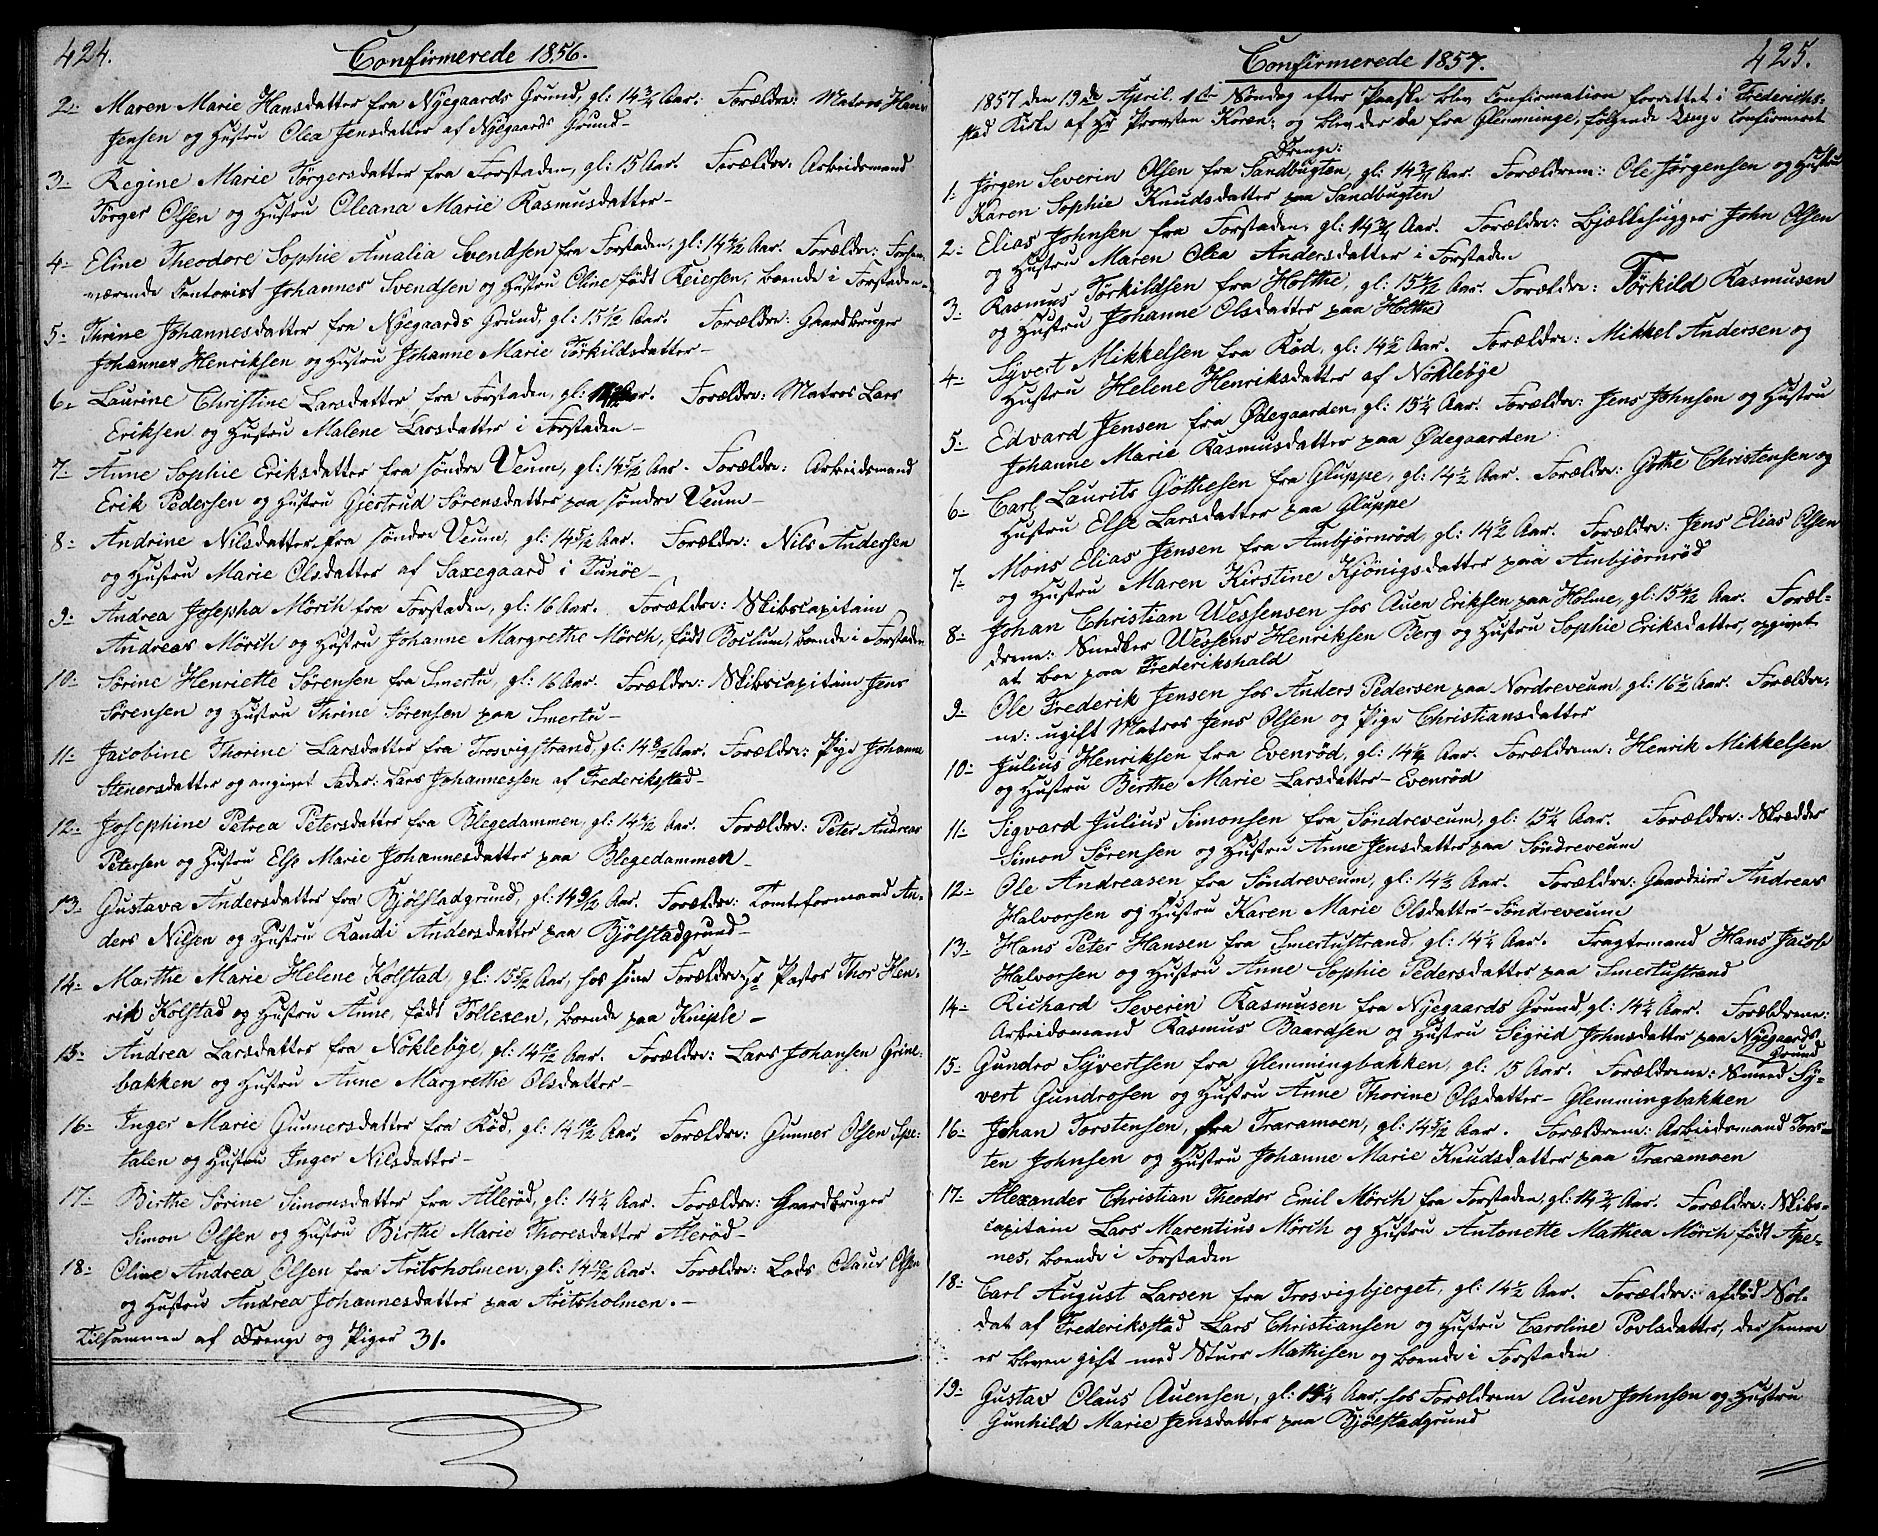 424.
Confirmerede 1856.
2. Maren Marie Hansdatter fra Nyegaards Grund, gl: 14 3/4 Aar. Forældre: Matros Hans
Jensen og Hustru Olea Jensdatter af Nyegaards Grund—
3. Regine Marie Törgersdatter fra Forstaden, gl: 15 Aar. Forældre: Arbeidsmand
Törger Olsen og Hustru Oleana Marie Rasmusdatter—
4. Eline Theodore Sophie Amalia Svendsen fra Forstaden, gl: Aar. Forældre:
værende Contorist Johannes Svendsen og Hustru Oline født boende i Forstaden—
5. Thrine Johannesdatter fra Nyegaards Grund, gl: 15 1/2 Aar. Forældre: Gaardbruger
Johannes Henriksen og Hustru Johanne Marie Törkildsdatter—
6. Laurine Christine Larsdatter fra Forstaden, gl: Aar. Forældre: Matros Lars
Eriksen og Hustru Malene Larsdatter i Forstaden—
7. Anne Sophie Eriksdatter fra söndre Veum, gl: 14 5/12 Aar. Forældre: Arbeidsmand
Erik Pedersen og Hustru Gjertrud Sörensdatter paa söndre Veum—
8. Andrine Nilsdatter fra söndre Veum, gl: 14 5/12 Aar. Forældre: Nils Andersen
og Hustru Marie Olsdatter af Saxegaard i Tunöe—
9. Andrea Josepha Mörch fra Forstaden, gl: 16 Aar. Forældre: Skibscapitain
Andreas Mörch og Hustru Johanne Margrethe Mörch, født boende i Forstaden
10. Sörine Henriette Sörensen fra Smertu, gl: 16 Aar. Forældre: Skibscapitain Jens
Sörensen og Hustru Thrine Sörensen paa Smertu—
11. Jacobine Thorine Larsdatter fra Trosvigstrand, gl: 14 9/12 Aar. Forældre: Pige Johanne
Stenersdatter og angivet Fader: Lars Johannessen af Frederikstad—
12. Josephine Petrea Petersdatter fra Blegedammen, gl: Aar. Forældre: Peter Andreas
Petersen og Hustru Else Marie Johannesdatter paa Blegedammen—
13. Gustava Andersdatter fra Bjölstadgrund, gl: 14 9/12 Aar. Forældre: Tomteformand An-
ders Nilsen og Hustru Randi Andersdatter paa Bjölstadgrund—
14. Marthe Marie Helene Kolstad, gl: 15 5/12 Aar, hos sine Forældre Hr Pastor Thor Hen-
rik Kolstad og Hustru Anne, født Tollexen, boende paa Kniple—
15. Andrea Larsdatter fra Nöklebye, gl: 14 10/12 Aar. Forældre: Lars Johansen Grine-
bakken og Hustru Anne Margrethe Olsdatter—
16. Inger Marie Gunnersdatter fra Röd, gl: 14 10/12 Aar. Forældre: Gunner Olsen Spe-
talen og Hustru Inger Nilsdatter—
17. Birthe Sörine Simonsdatter fra Alleröd, gl: 14 1/2 Aar. Forældre: Gaardbruger
Simon Olsen og Hustru Birthe Marie Thoresdatter Aleröd—
18. Oline Andrea Olsen fra Aritsholmen, gl: 14 10/12 Aar. Forældre: Lods Olaus Olsen
og Hustru Andrea Johannesdatter paa Aritsholmen.—
Tilsammen af Drenge og Piger 31.
Confirmerede 1857.
425.
1857 den 19de April. 1ste Söndag efter Paaske blev Confirmation forrettet i Frederiks-
stad Kirke af Hr Provsten og blev der da fra Glemminge, følgende Unge Confirmeret
Drenge:
1. Jörgen Severin Olsen fra Sandbugten, gl: 14 3/4 Aar. Forældrene: Ole Jörgensen og Hustru
Karen Sophie Knudsdatter paa Sandbugten
2. Elias Johnsen fra Forstaden, gl: 14 3/4 Aar. Forældre: Bjælkehugger John Olsen
og Hustru Maren Olea Andersdatter i Forstaden
3. Rasmus Törkildsen fra Holthe, gl: Aar. Forældre: Törkild Rasmusen
og Hustru Johanne Olsdatter paa Holthe
4. Syvert Mikkelsen fra Röd, gl: 14 1/2 Aar. Forældre: Mikkel Andersen og
Hustru Helene Henriksdatter af Nöklebye
5. Edvard Jensen fra Ødegaarden, gl: 15 1/4 Aar. Forældre: Jens Johnsen og Hustru
Johanne Marie Rasmusdatter paa Ødegaarden
6. Carl Laurits Göthesen fra Gluppe, gl: 14 1/2 Aar. Forældre: Göthe Christensen og
Hustru Else Larsdatter paa Gluppe
7. Mons Elias Jensen fra Ambjörnröd, gl: 14 1/2 Aar. Forældre: Jens Elias Olsen
og Hustru Maren Kirstine Kjönigsdatter paa Ambjörnröd
8. Johan Christian Wessensen hos Auen Eriksen paa Holme, gl: Aar. Foræl-
drene: Snedker Wessens Henriksen Berg og Hustru Sophie Eriksdatter, opgivet
at boe paa Frederikshald
9. Ole Frederik Jensen hos Anders Pedersen paa Nordreveum, gl: Aar. Forældre-
ne: ugift Matros Jens Olsen og Pige Christiansdatter
10. Julius Henriksen fra Evenröd, gl: 14 1/4 Aar. Forældrene: Henrik Mikkelsen
og Hustru Birthe Marie Larsdatter— Evenröd
11. Sigvard Julius Simonsen fra Söndreveum, gl: 15 1/4 Aar. Forældre: Skrædder
Simon Sörensen og Hustru Anne Jensdatter paa Söndreveum
12. Ole Andreasen fra Söndreveum, gl: 14 1/2 Aar. Forældre: Gaardeier Andreas
Halvorsen og Hustru Karen Marie Olsdatter— Söndreveum
13. Hans Peter Hansen fra Smertustrand, gl: 14 1/2 Aar. Fragtemand Hans Jacob
Halvorsen og Hustru Anne Sophie Pedersdatter paa Smertustrand
14. Richard Severin Rasmusen fra Nyegaards Grund, gl: 14 1/2 Aar. Forældrene:
Arbeidsmand Rasmus Baardsen og Hustru Sigrid Johnsdatter paa Nyegaards
Grund
15. Gundro Syvertsen fra Glemmingbakken, gl: 15 Aar. Forældrene: Smeed Sy-
vert Gundrosen og Hustru Anne Thorine Olsdatter— Glemmingbakken
16. Johan Torstensen, fra Traramoen, gl: 14 5/12 Aar. Forældrene: Arbeidsmand Tors-
ten Johnsen og Hustru Johanne Marie Knudsdatter paa Traramoen
17. Alexander Christian Theodor Emil Mörch fra Forstaden, gl: 14 3/4 Aar. Forældre: Skibs-
capitain Lars Marentius Mörch og Hustru Antonette Mathea Mörch født Ape-
nes, boende i Forstaden
18. Carl August Larsen fra Trosvigbjerget, gl: 14 1/2 Aar. Forældre: afdöd Sol-
dat af Frederikstad Lars Christiansen og Hustru Caroline Povlsdatter, der senere
er bleven gift med Mathisen og boende i Forstaden
19. Gustav Olaus Auensen, gl: Aar, hos Forældrene Auen Johnsen og Hustru
Gunhild Marie Jensdatter paa Bjölstadgrund